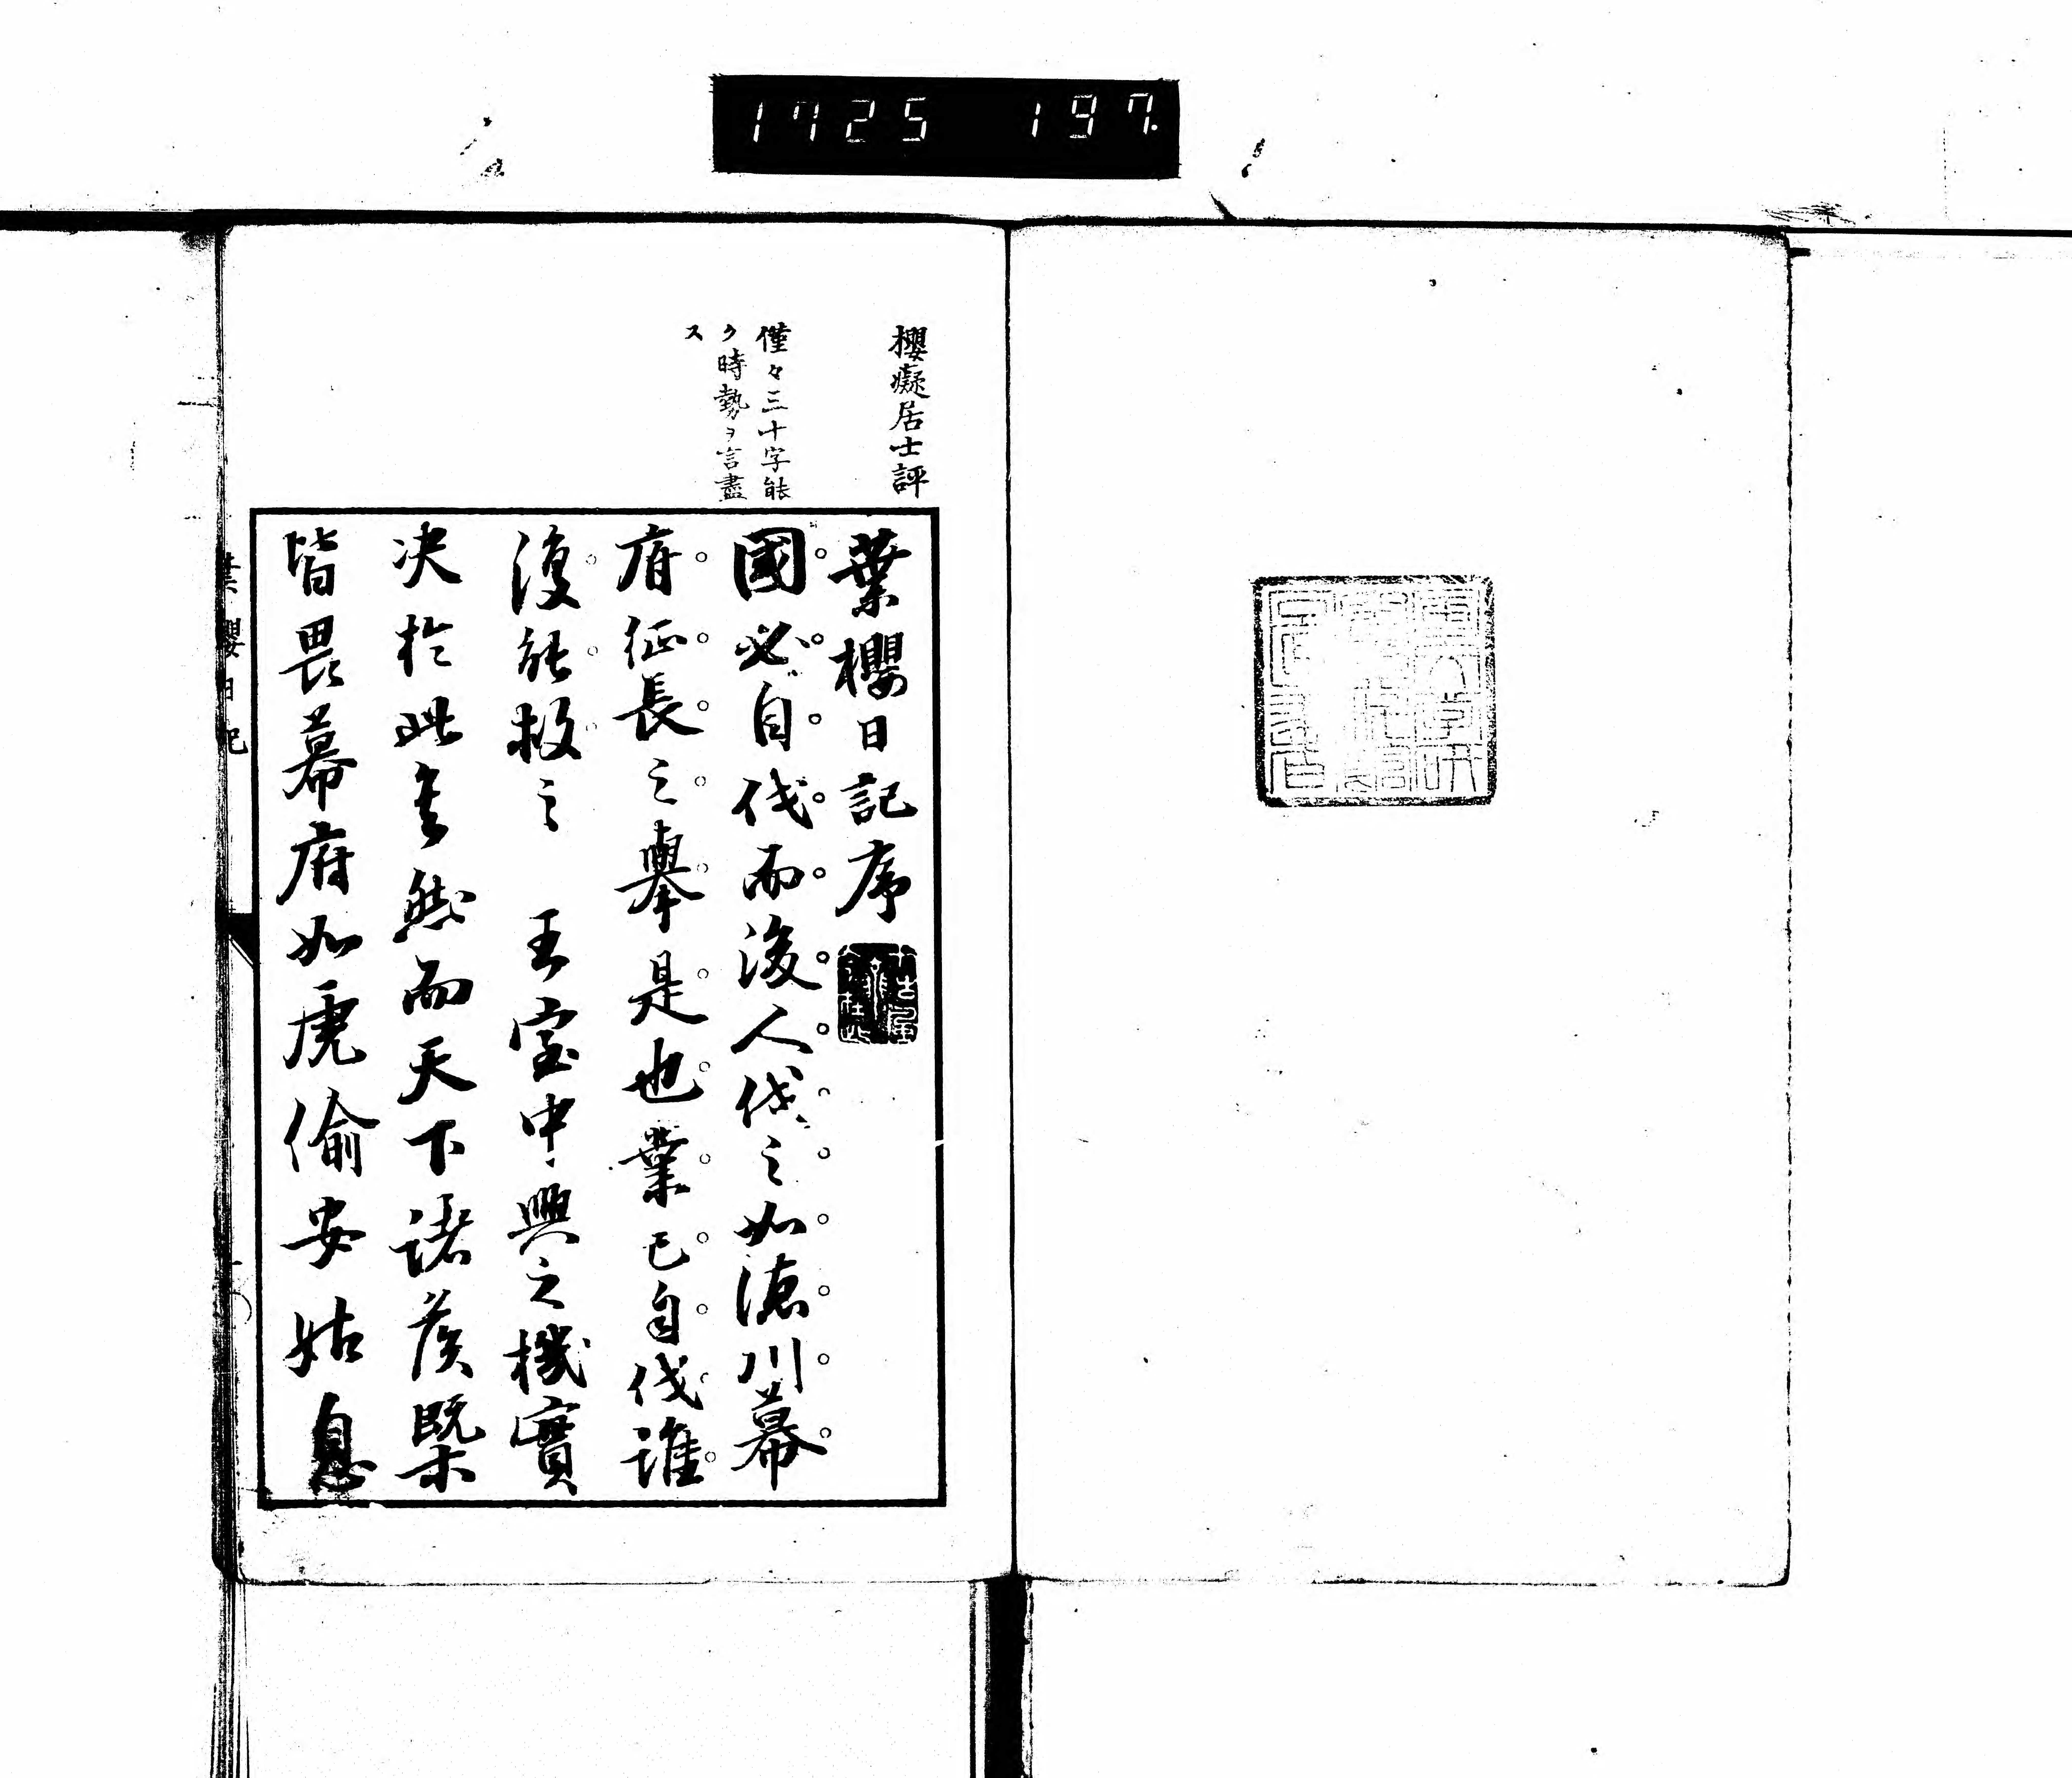 1725 197.
櫻癡居士評
僅々三十字能
ク時勢ヲ言盡
ス
葉櫻日記序
國必自伐而後人伐之如德川幕
府征長之擧是也業已自伐誰
復能救之　王室中興之機實
決於此矣然而天下諸侯槩
皆畏幕府如虎偷安姑息
葉櫻日記